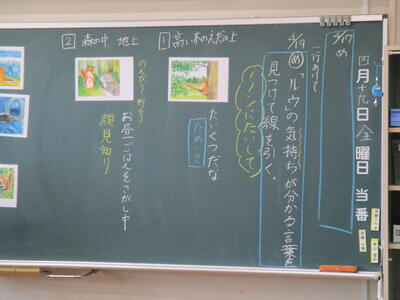 四月十九日(金)曜日 当番
4/17 め
一行あけて
4/19 め 「ルウ」の気持ちが分かる言葉を
見つけて線を引く。
ノノンにたいして
1 高い木のえだの上
たいくつだな
ためいき
2 森の中 地上
のんびり おっとり
お昼ごはんをさがし中
顔見知り